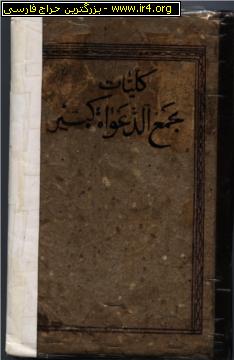 www.ir4.org - بزرگترین حراج فارسی
کلیات
مجمع الدعوات کبیر